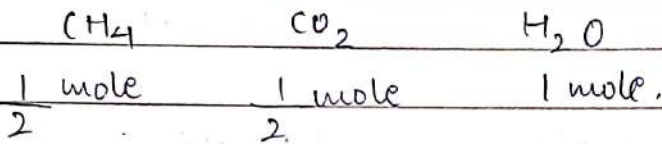 CH4 CO2 H2O
1/2 mole 1/2 mole 1 mole.